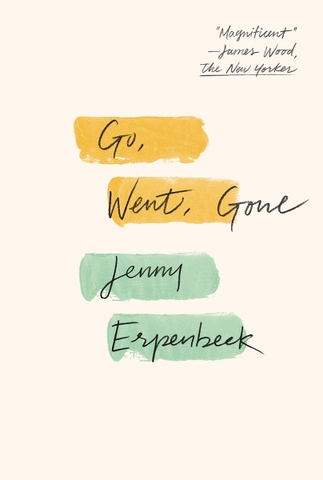 "Magnificent"
—James Wood,
The New Yorker
Go,
Went, Gone
Jenny
Erpenbeck